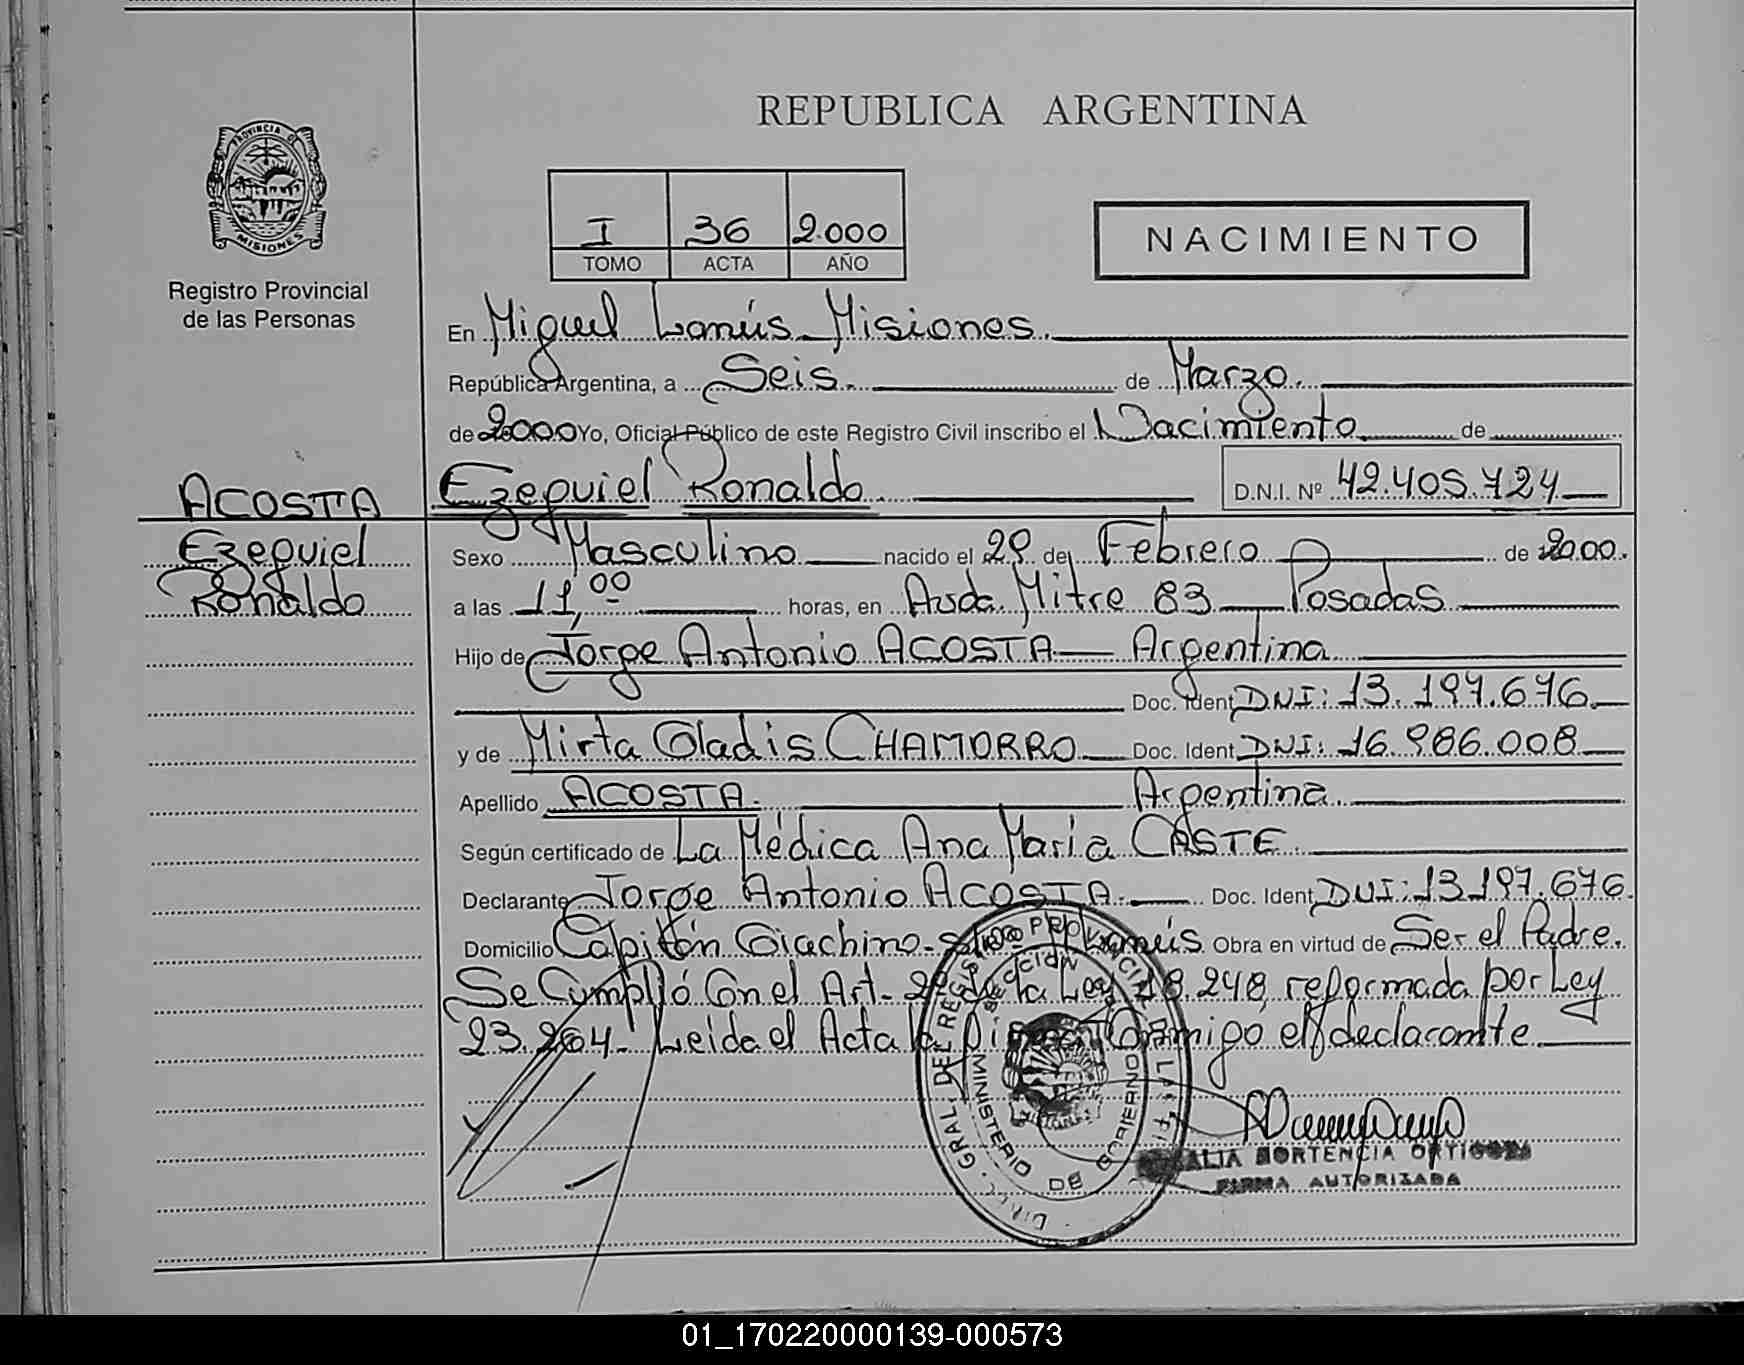 REPUBLICA ARGENTINA
PROVINCIA DE
MISIONES
Registro Provincial
de las Personas
I 36 2.000
TOMO ACTA AÑO
NACIMIENTO
En Miguel Lanús Misiones.
República Argentina, a Seis. de Marzo.
de 2000 Yo, Oficial Público de este Registro Civil inscribo el Nacimiento de
ACOSTA
Ezequiel
Ronaldo
Ezequiel Ronaldo D.N.I. Nº 42.405.724
Sexo Masculino nacido el 29 de Febrero de 2000.
a las 11,00 horas, en Avda. Mitre 83 Posadas
Hijo de Jorge Antonio ACOSTA Argentina
Doc. Ident DNI: 13.197.676
y de Mirta Gladis CHAMORRO Doc. Ident DNI: 16.986.008
Apellido ACOSTA. Argentina.
Según certificado de La Médica Ana Maria CASTE
Declarante Jorge Antonio ACOSTA. Doc. Ident DNI: 13.197.676.
Domicilio Capitán Giachino Lanús Obra en virtud de Ser el Padre.
Se Cumplió Con el Art. 2º de la Ley 18.248, reformada por Ley
23.264. Leída el Acta la Conmigo el declarante
MINISTERIO DE GOBIERNO
HORTENCIA ORTIGOZA
FIRMA AUTORIZADA
01_170220000139-000573